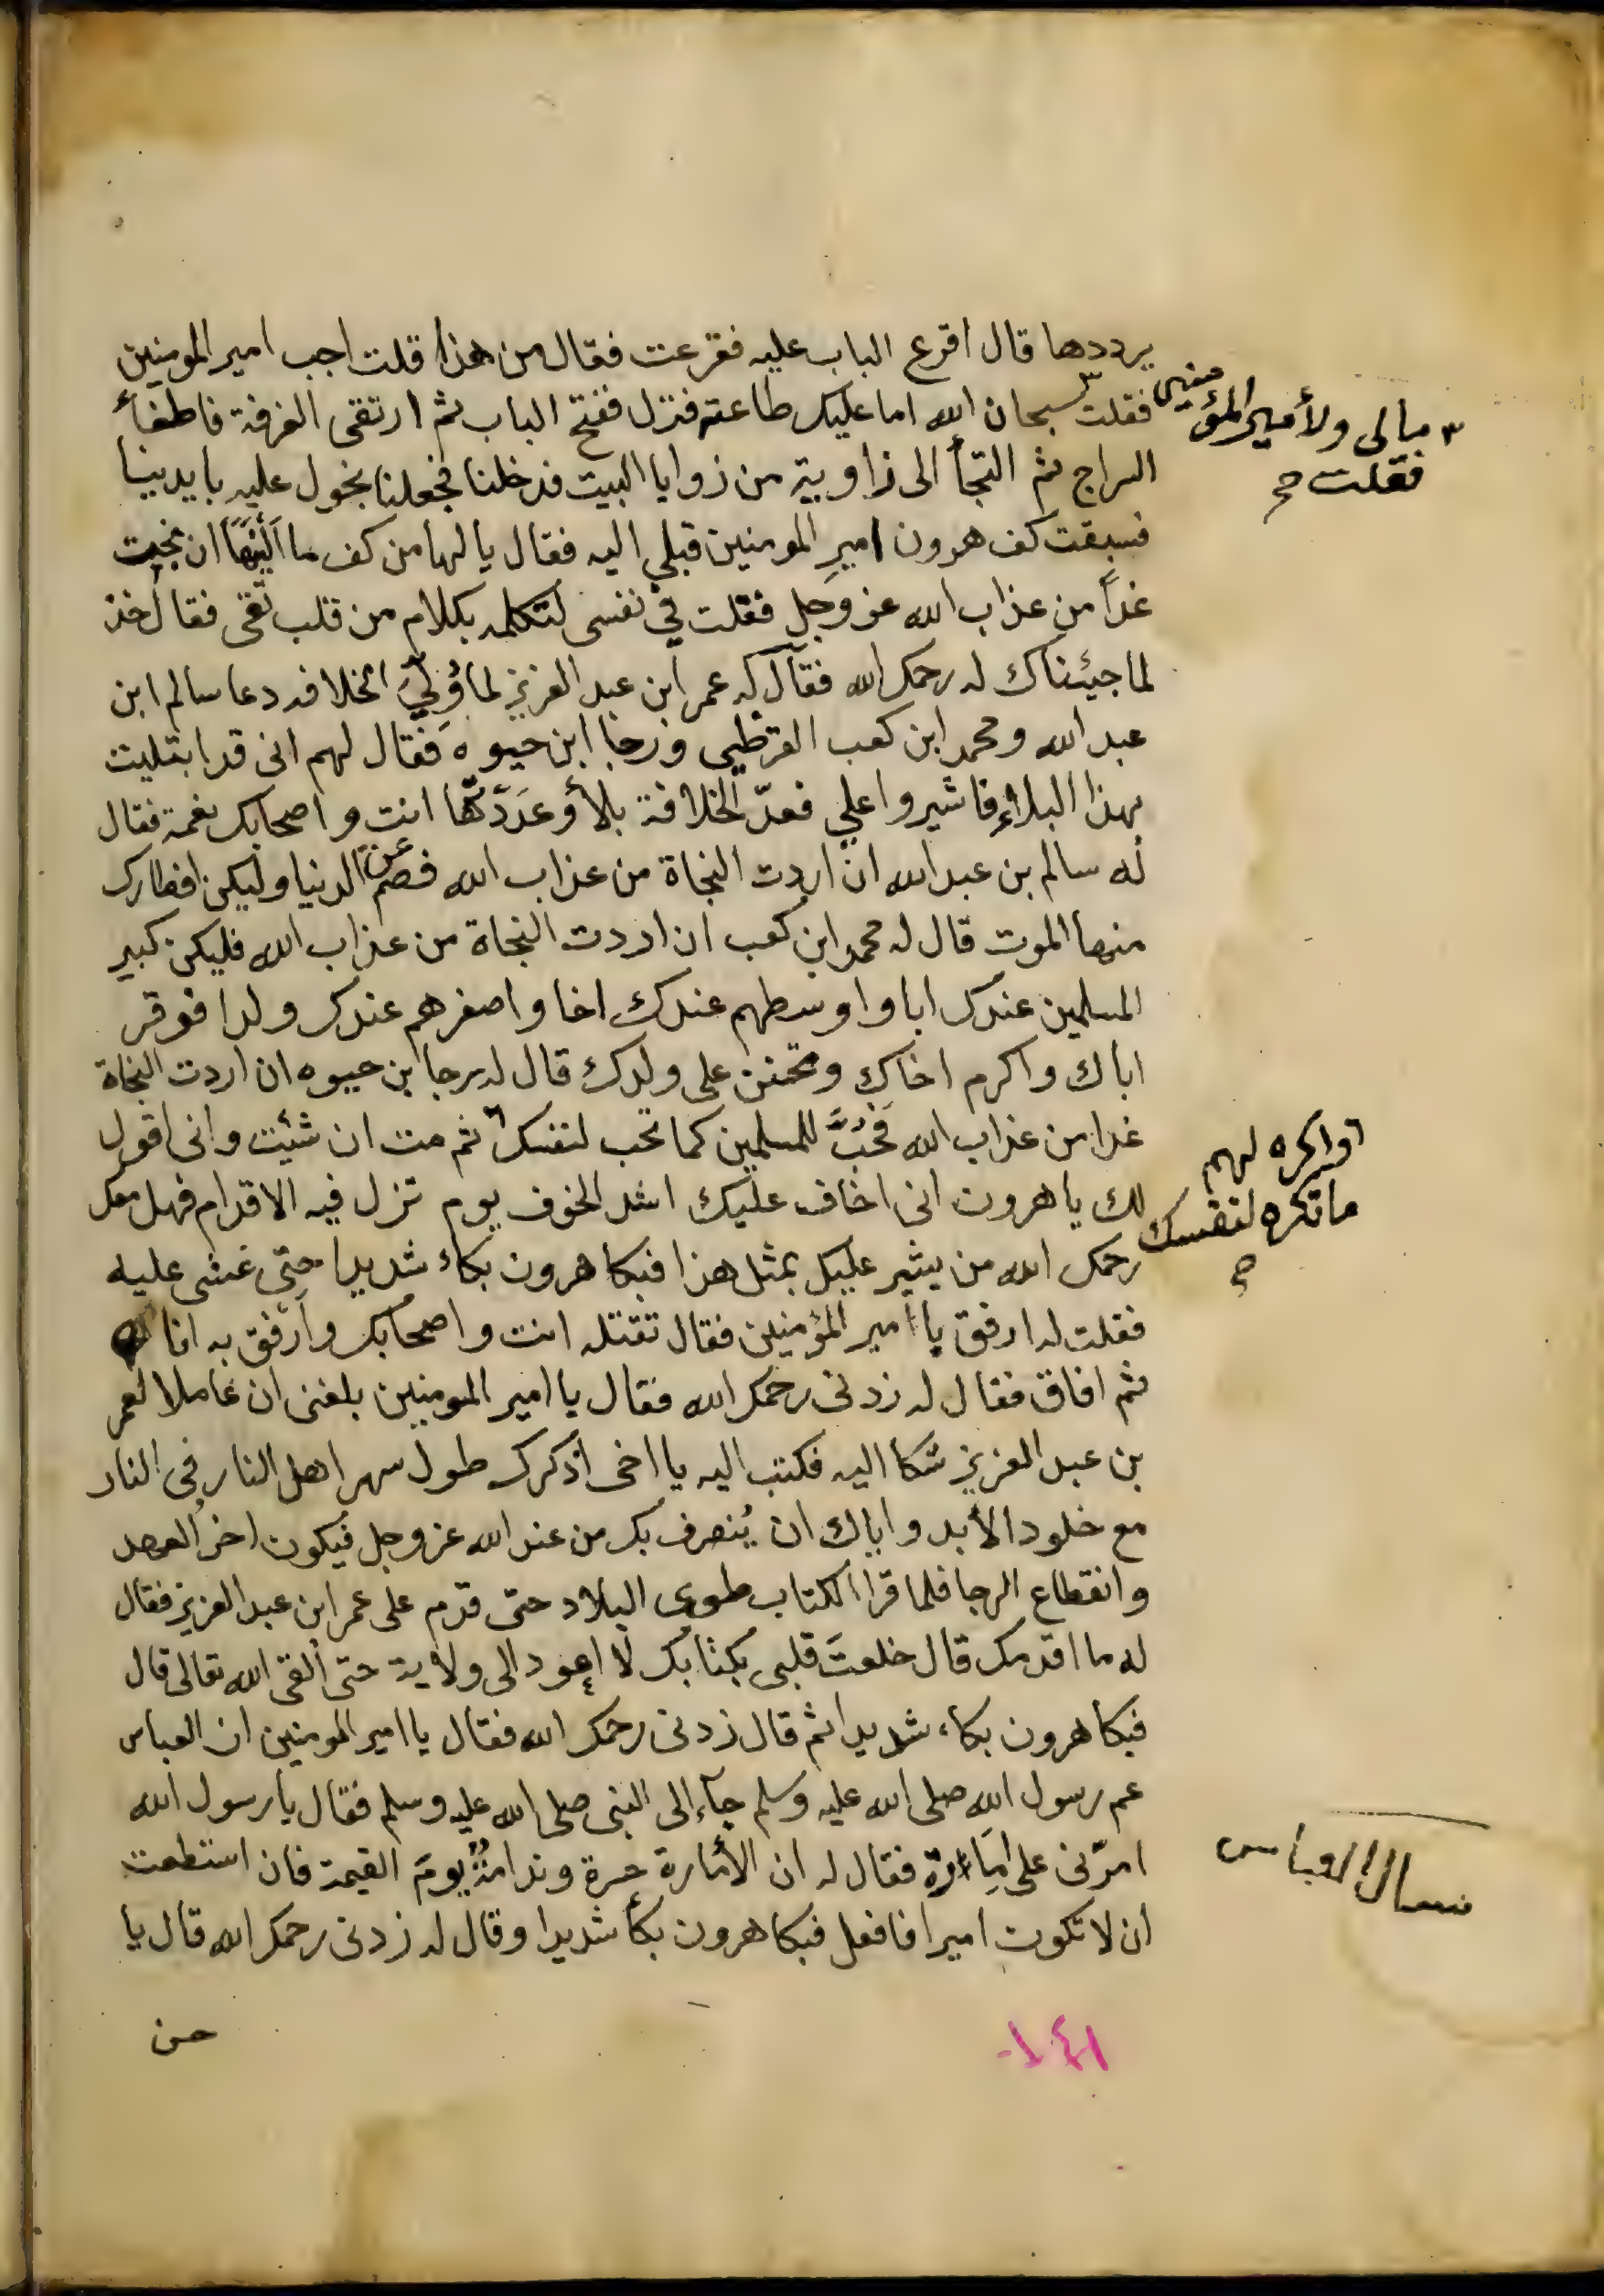 يرددها قال اقرع الباب عليه فقرعت فقال من هذا قلت اجب امير المومنين
فقلت سبحان الله اما عليك طاعته فنزل ففتح الباب ثم ارتقى الغرفة فاطفأ
السراج ثم التجأ الى زاوية من زوايا البيت فدخلنا فجعلنا نجول عليه بايدينا
فسبقت كف هرون امير المومنين قبلي اليه فقال يا لها من كف ما اَلْيَنَهَا ان نجيت
غداً من عذاب الله عز وجل فقلت في نفسى لتكلمه بكلام من قلب تقى فقال خذ
لما جيئناك له رحمك الله فقال له عمر ابن عبد العزيز لما وُلِّيَ الخلافه دعا سالم ابن
عبد الله ومحمد ابن كعب القرظي ورجا ابن حيوه فقال لهم انى قد ابتليت
بهذا البلاء فاشيروا علي فعدّ الخلافة بلأ وعَدَدْتّها انت واصحابك نعمة فقال
له سالم بن عبد الله ان اردت النجاة من عذاب الله فصم عن الدنيا وليكن افطارك
منها الموت قال له محمد ابن كعب ان اردت النجاة من عذاب الله فليكن كبير
المسلمين عندك ابا واوسطهم عندك اخا واصغرهم عندك ولدا فوقر
اباك واكرم اخاك وتحنن على ولدك قال له رجا بن حيوه ان اردت النجاة
غدا من عذاب الله فحُبَّ للمسلمين كما تحب لنفسك ثم مت ان شئيت وانى اقول
لك يا هرون انى اخاف عليك اشد الخوف يوم تزل فيه الاقدام فهل معك
رحمك الله من يشير عليك بمثل هذا فبكا هرون بكاء شديدا حتى غشى عليه
فقلت له ارفق يا امير المؤمنين فقال تقتله انت واصحابك وأرفق به انا
ثم افاق فقال له زدنى رحمك الله فقال يا امير المومنين بلغنى ان عاملا لعمر
بن عبد العزيز شكا اليه فكتب اليه يا اخى اذكرك طول سهر اهل النار فى النار
مع خلود الأبد واياك ان يُنصرف بك من عند الله عز وجل فيكون اخر العهد
وانقطاع الرجا فلما قرا الكتاب طوى البلاد حتى قدم على عمر ابن عبد العزيز فقال
له ما اقدمك قال خلعتَ قلبى بكتابك لا اعود الى ولاية حتى القى الله تعالى قال
فبكا هرون بكاء شديدا ثم قال زدنى رحمك الله فقال يا امير المومنين ان العباس
عم رسول الله صلى الله عليه وسلم جآء الى النبى صلى الله عليه وسلم فقال يا رسول الله
امرّنى على امارة فقال له ان الأمارة حسرة وندامةٌ يومَ القيمة فان استطعت
ان لا تكون اميرا فافعل فبكا هرون بكأ شديدا وقال له زدنى رحمك الله قال يا
حسن
٣ مالى ولأمير المؤمنين
فقلت صح
واكره لهم
ما تكره لنفسك
صح
سال العباس
١٤١